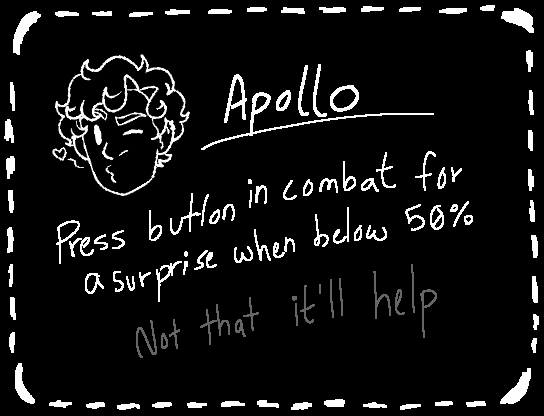 Apollo
Press button in combat for
a surprise when below 50%
Not that it'll help